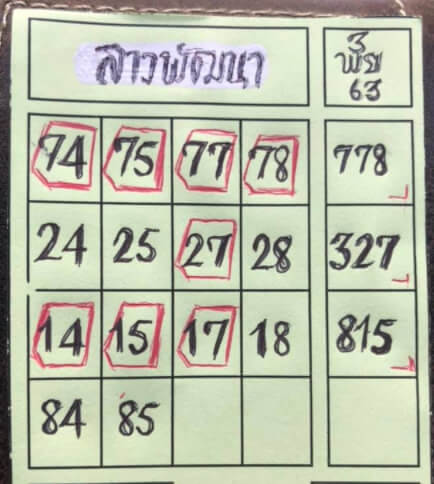 ลาวพัฒนา
3
พ.ย
63
74 75 77 78 778
24 25 27 28 327
14 15 17 18 815
84 85